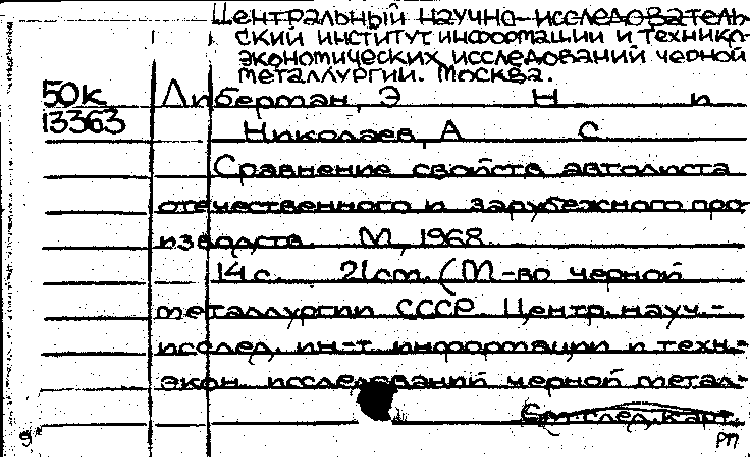 Центральный научно-исследователь-
ский институт информации и технико-
экономических исследований черной
металлургии. Москва.
50к Либерман, Э Н и
13363 Николаев, А С
Сравнение свойств автолиста
отечественного и зарубежного про-
изводств. М, 1968
14с. 21 cm. (М-во черной
металлургии СССР. Центр. науч.-
исслед. ин-т информации и техн.-
экон. исследований черной метал-
См. след. карт.
9
РП